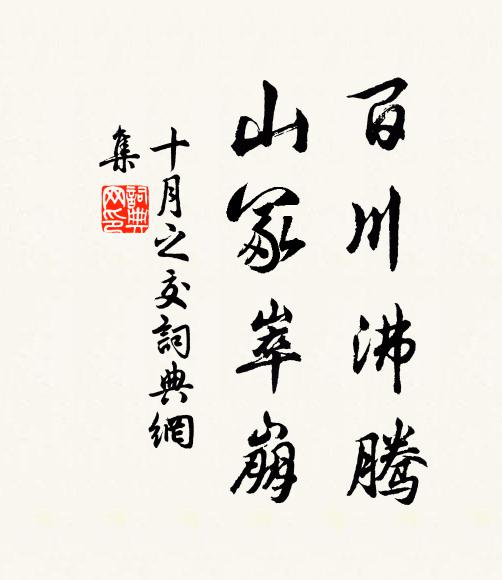 百川沸腾
山冢崒崩
十月之交詞典網
集
詞典网印